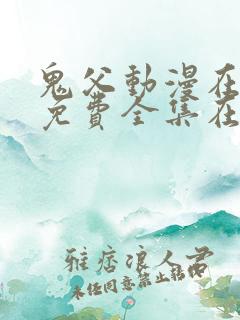 鬼父動漫在
免費全集在
雅痞浪人君
未任同意禁止轉載